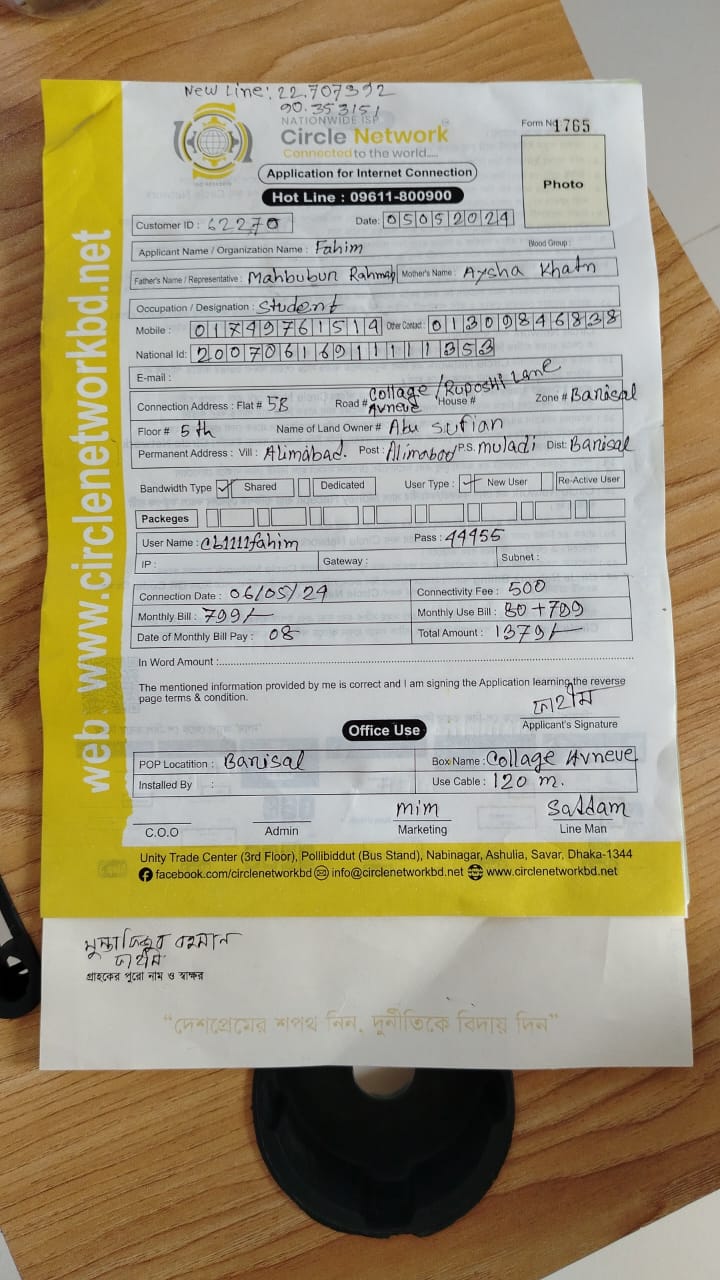 New Line: 22.707392
90.353151
NATIONWIDE ISP
Circle Network
Connected to the world.....
Form No 1765
Application for Internet Connection
Photo
Hot Line : 09611-800900
Customer ID : 62270 Date: 05052024
Applicant Name / Organization Name : Fahim Blood Group :
Father's Name / Representative : Mahbubur Rahman Mother's Name : Aysha Khatn
Occupation / Designation : Student
Mobile : 01749761514 Other Contact : 01309846838
National Id: 20070616911111353
E-mail :
Connection Address : Flat # 5B Road # Collage Avneve / Ruposhi Lane House # Zone # Barisal
Floor # 5th Name of Land Owner # Abu Sufian
Permanent Address : Vill : Alimabad. Post : Alimabad P.S. muladi Dist: Barisal
Bandwidth Type Shared Dedicated User Type : New User Re-Active User
Packeges
User Name : cb1111fahim Pass : 44455
IP : Gateway : Subnet :
Connection Date : 06/05/24 Connectivity Fee : 500
Monthly Bill : 799/- Monthly Use Bill : 80+799
Date of Monthly Bill Pay : 08 Total Amount : 1379/-
In Word Amount :
The mentioned information provided by me is correct and I am signing the Application learning the reverse
page terms & condition.
ফাহীম
Applicant's Signature
Office Use
POP Locatition : Barisal Box Name : Collage Avneve
Installed By : Use Cable : 120 m.
mim Saddam
C.O.O Admin Marketing Line Man
Unity Trade Center (3rd Floor), Pollibiddut (Bus Stand), Nabinagar, Ashulia, Savar, Dhaka-1344
facebook.com/circlenetworkbd info@circlenetworkbd.net www.circlenetworkbd.net
web www.circlenetworkbd.net
রহমান
ফাহীম
গ্রাহকের পুরো নাম ও স্বাক্ষর
“দেশপ্রেমের শপথ নিন, দুর্নীতিকে বিদায় দিন”